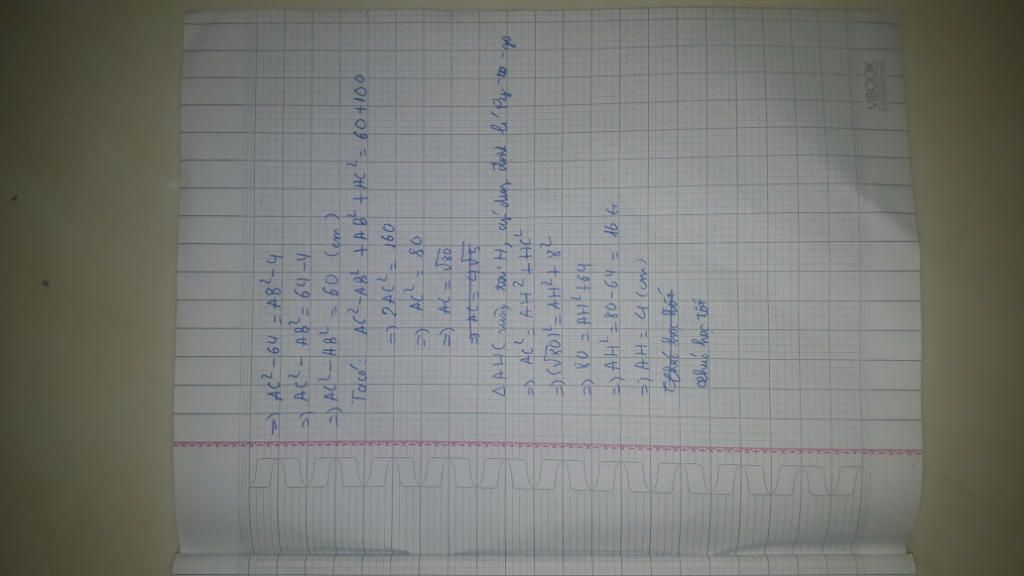 =) AC² - 64 = AB² - 4
=) AC² - AB² = 64 - 4
=) AC² - AB² = 60 (cm)
Ta có: AC² - AB² + AB² + AC² = 60 + 100
=) 2AC² = 160
=) AC² = 80
=) AC = √80
=) AC = 4√5
Δ AHC vuông tại H, áp dụng định lí Py-ta-go
=) AC² = AH² + HC²
=) (√80)² = AH² + 8²
=) 80 = AH² + 64
=) AH² = 80 - 64 = 16
=) AH = 4 (cm)
Chúc học tốt
chúc học tốt
VIBOOK